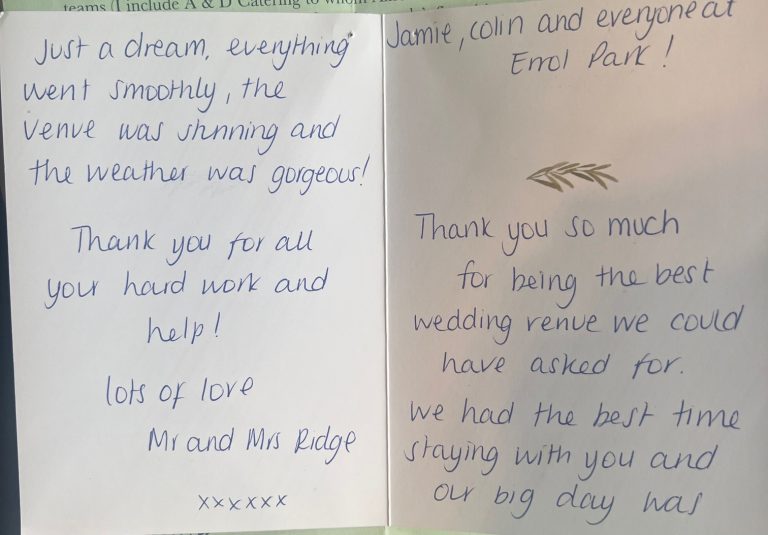 teams (I include A & D Catering to whom
Jamie, colin and everyone at
Errol Park!
Thank you so much
for being the best
wedding venue we could
have asked for.
we had the best time
staying with you and
our big day was
Just a dream, everything
went smoothly, the
venue was stunning and
the weather was gorgeous!
Thank you for all
your hard work and
help!
lots of love
Mr and Mrs Ridge
xxxxxx